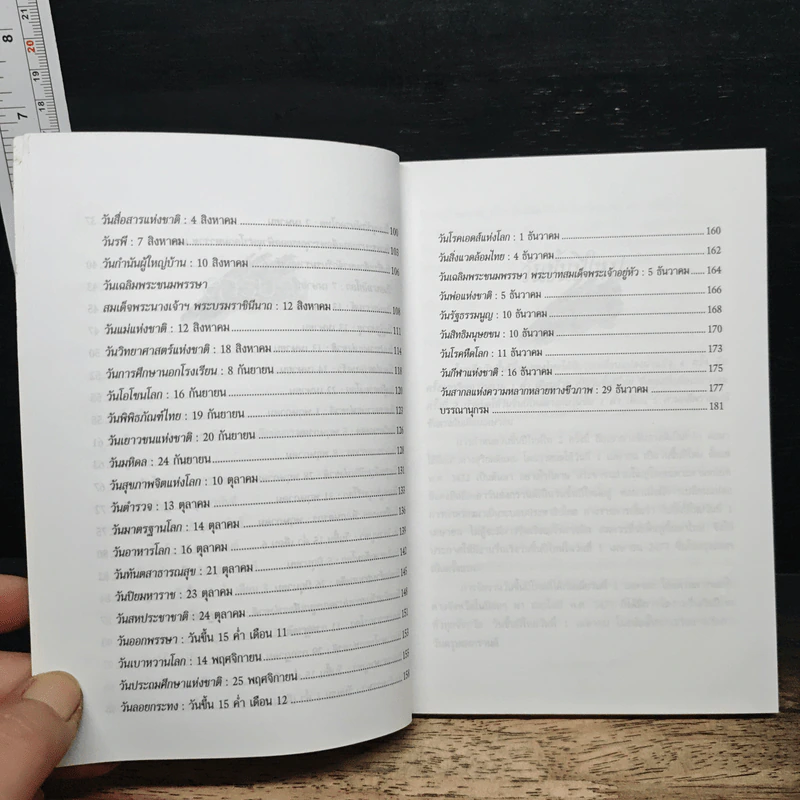 วันสื่อสารแห่งชาติ : 4 สิงหาคม 100
วันรพี : 7 สิงหาคม 103
วันกำนันผู้ใหญ่บ้าน : 10 สิงหาคม 106
วันเฉลิมพระชนมพรรษา
สมเด็จพระนางเจ้าฯ พระบรมราชินีนาถ : 12 สิงหาคม 108
วันแม่แห่งชาติ : 12 สิงหาคม 111
วันวิทยาศาสตร์แห่งชาติ : 18 สิงหาคม 114
วันการศึกษานอกโรงเรียน : 8 กันยายน
วันโอโซนโลก : 16 กันยายน 120
วันพิพิธภัณฑ์ไทย : 19 กันยายน 123
วันเยาวชนแห่งชาติ : 20 กันยายน 126
วันมหิดล : 24 กันยายน 128
วันสุขภาพจิตแห่งโลก : 10 ตุลาคม 131
วันตำรวจ : 13 ตุลาคม
วันมาตรฐานโลก : 14 ตุลาคม 136
วันอาหารโลก : 16 ตุลาคม 139
วันทันตสาธารณสุข : 21 ตุลาคม 142
วันปิยมหาราช : 23 ตุลาคม 145
วันสหประชาชาติ : 24 ตุลาคม
วันออกพรรษา : วันขึ้น 15 ค่ำ เดือน 11 151
วันเบาหวานโลก : 14 พฤศจิกายน 153
วันประถมศึกษาแห่งชาติ : 25 พฤศจิกายน 155
วันลอยกระทง : วันขึ้น 15 ค่ำ เดือน 12 158
วันโรคเอดส์แห่งโลก : 1 ธันวาคม 160
วันสิ่งแวดล้อมไทย : 4 ธันวาคม 162
วันเฉลิมพระชนมพรรษา พระบาทสมเด็จพระเจ้าอยู่หัว : 5 ธันวาคม 164
วันพ่อแห่งชาติ : 5 ธันวาคม 166
วันรัฐธรรมนูญ : 10 ธันวาคม 168
วันสิทธิมนุษยชน : 10 ธันวาคม 170
วันโรคหืดโลก : 11 ธันวาคม 173
วันกีฬาแห่งชาติ : 16 ธันวาคม 175
วันสากลแห่งความหลากหลายทางชีวภาพ : 29 ธันวาคม 177
บรรณานุกรม 181